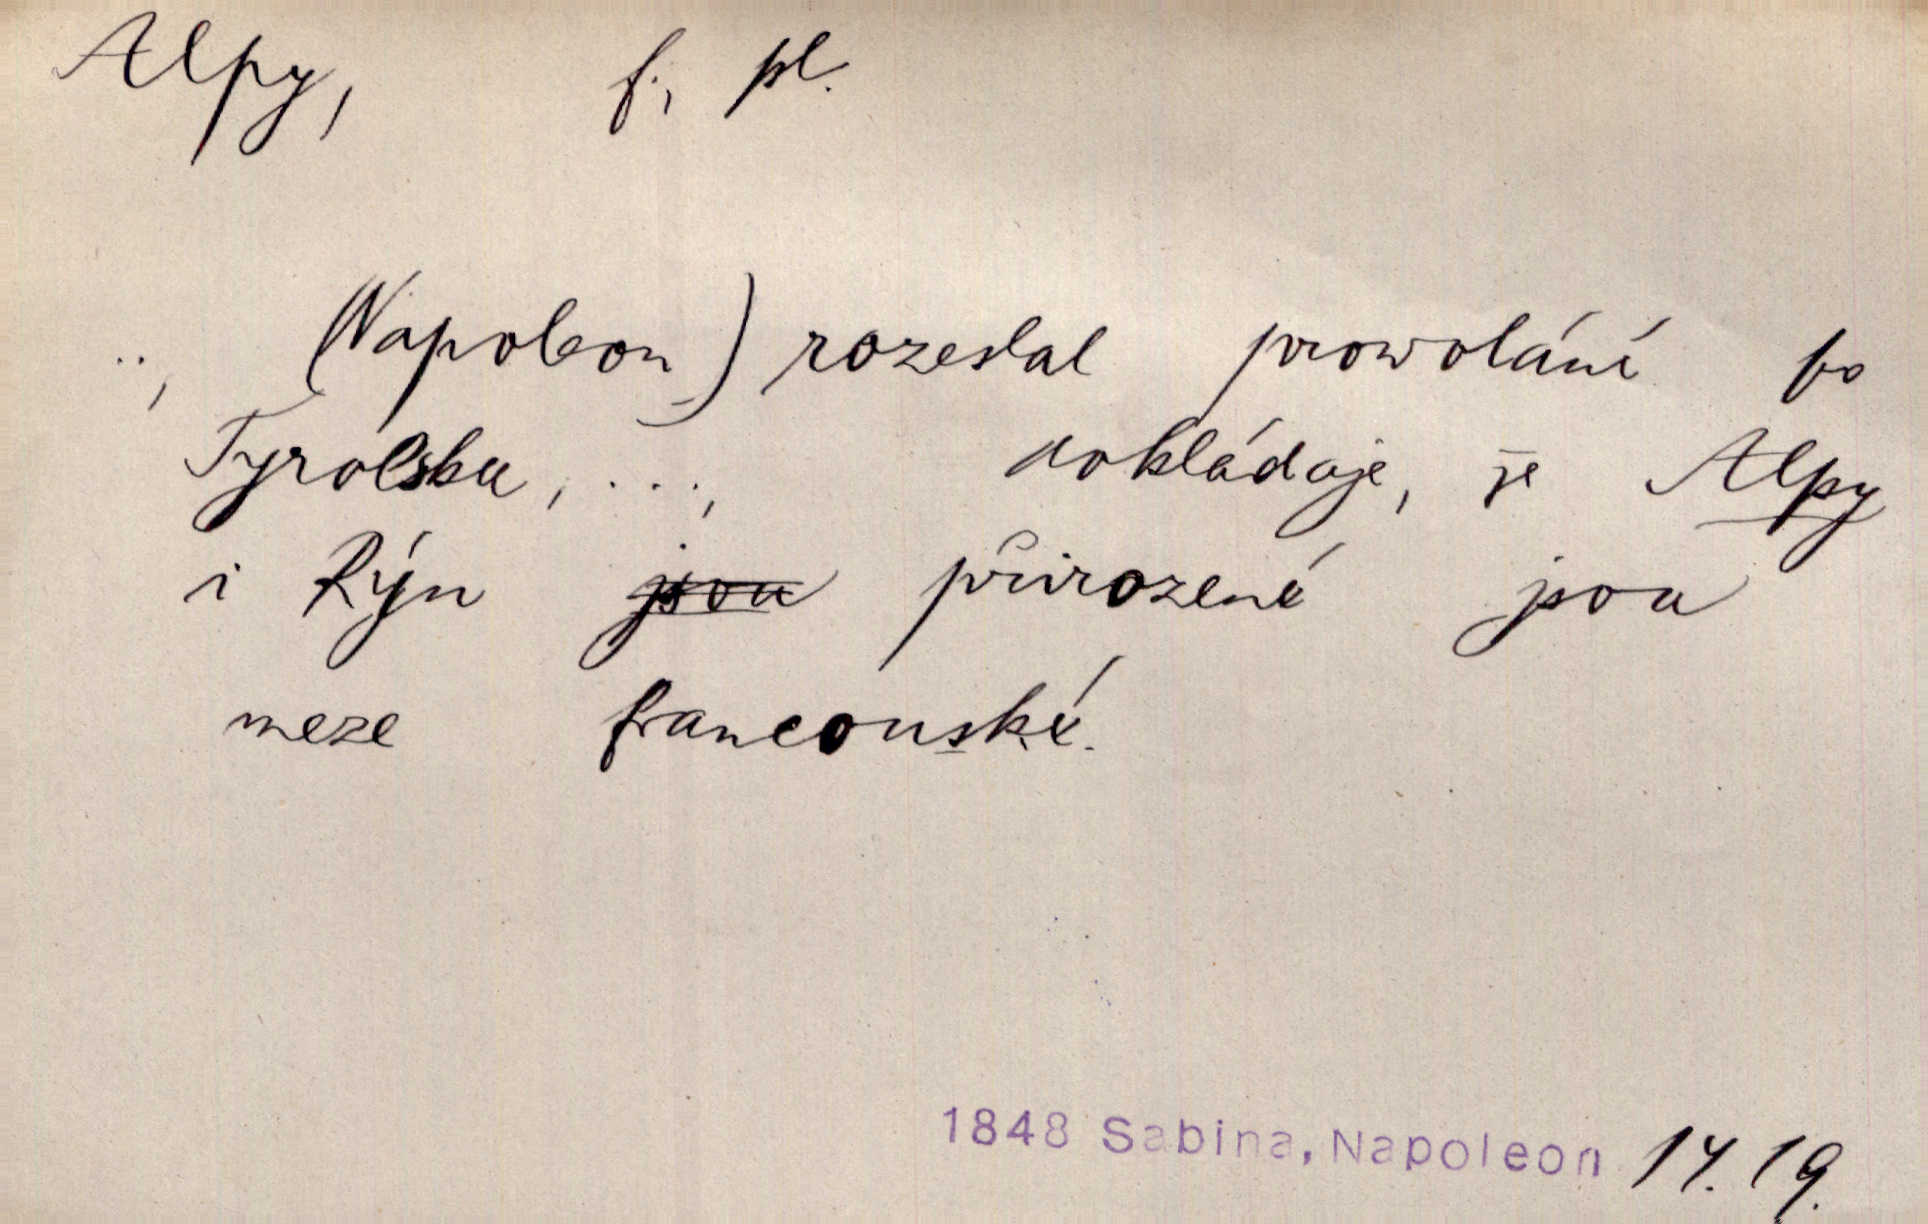 Alpy, f., pl.
.., (Napoleon) rozeslal prowolání po
Tyrolsku, ..., dokládaje, že Alpy
i Rýn jsou přirozené jsou
meze francouské.
1848 Sabina, Napoleon 14. 19.